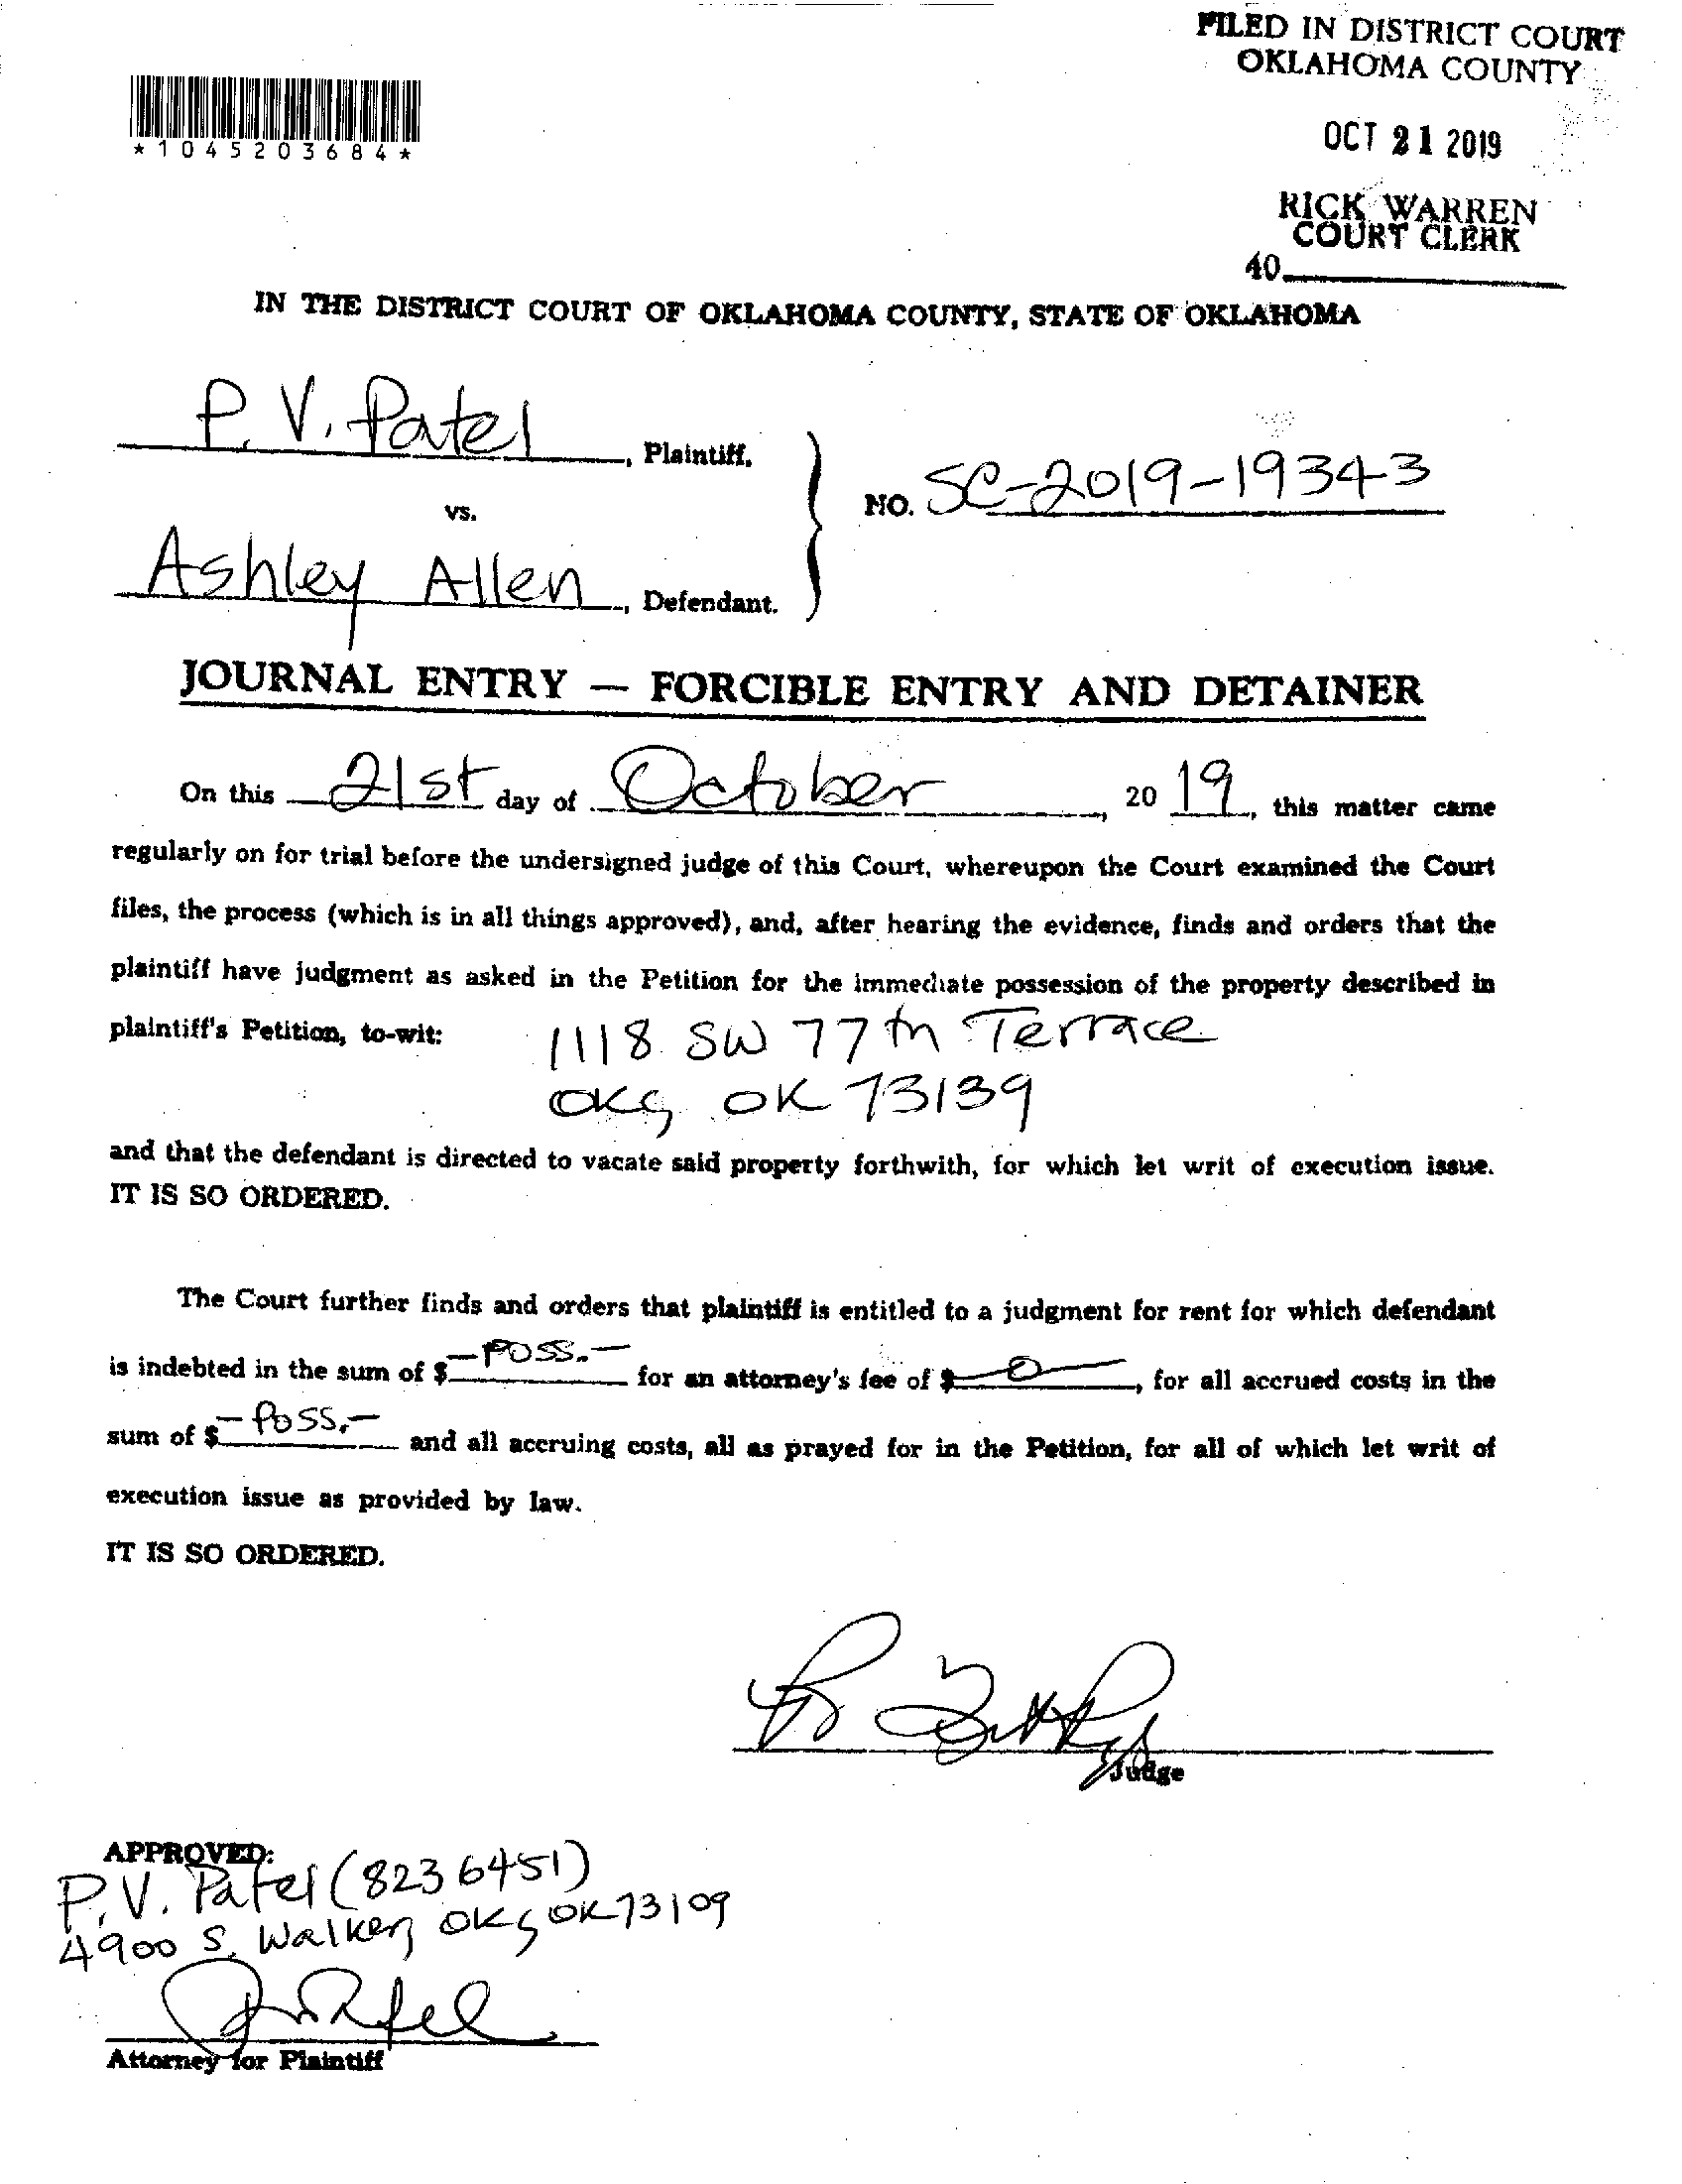 FILED IN DISTRICT COURT
OKLAHOMA COUNTY
OCT 21 2019
RICK WARREN
COURT CLERK
40
*1045203684*
IN THE DISTRICT COURT OF OKLAHOMA COUNTY, STATE OF OKLAHOMA
P. V. Patel, Plaintiff,
vs.
NO. SC-2019-19343
Ashley Allen, Defendant.
JOURNAL ENTRY — FORCIBLE ENTRY AND DETAINER
On this 21st day of October, 20 19, this matter came
regularly on for trial before the undersigned judge of this Court, whereupon the Court examined the Court
files, the process (which is in all things approved), and, after hearing the evidence, finds and orders that the
plaintiff have judgment as asked in the Petition for the immediate possession of the property described in
plaintiff's Petition, to-wit: 1118 SW 77th Terrace
OKC, OK 73139
and that the defendant is directed to vacate said property forthwith, for which let writ of execution issue.
IT IS SO ORDERED.
The Court further finds and orders that plaintiff is entitled to a judgment for rent for which defendant
is indebted in the sum of $ -POSS.- for an attorney's fee of $ 0, for all accrued costs in the
sum of $ -POSS.- and all accruing costs, all as prayed for in the Petition, for all of which let writ of
execution issue as provided by law.
IT IS SO ORDERED.
Judge
APPROVED:
P. V. Patel (823 6451)
4900 S. Walker, OKC, OK 73109
Attorney for Plaintiff